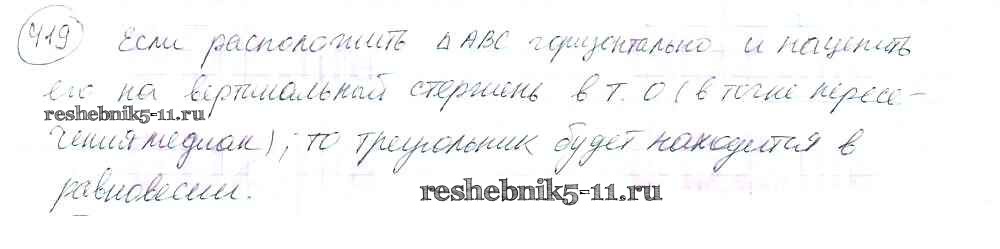 419 Если расположить Δ ABC горизонтально и нацепить
его на вертикальный стержень в т. О (в точке пересе-
reshebnik5-11.ru
чения медиан), то треугольник будет находится в
равновесии.
reshebnik5-11.ru